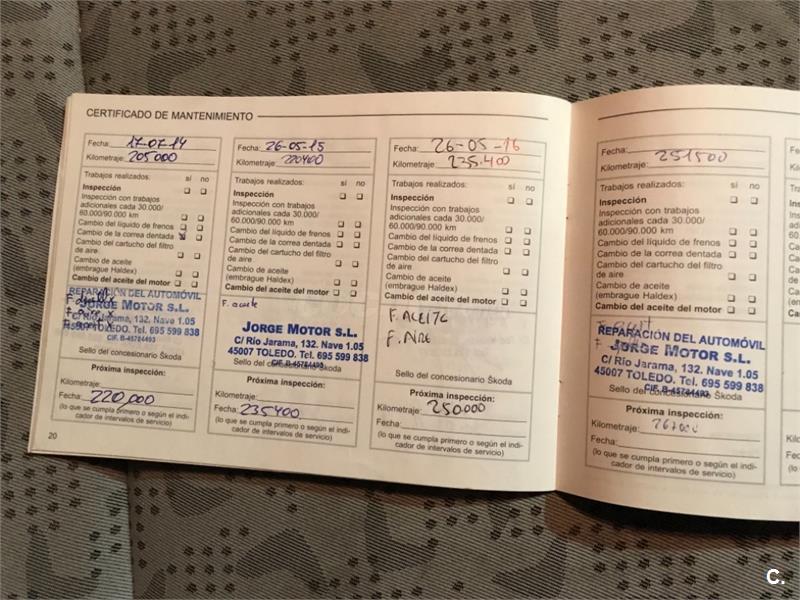 CERTIFICADO DE MANTENIMIENTO
Fecha: 17-07-14
Kilometraje: 205000
Trabajos realizados: sí no
Inspección
Inspección con trabajos
adicionales cada 30.000/
60.000/90.000 km
Cambio del líquido de frenos
Cambio de la correa dentada
Cambio del cartucho del filtro
de aire
Cambio de aceite
(embrague Haldex)
Cambio del aceite del motor
REPARACIÓN DEL AUTOMÓVIL
JORGE MOTOR S.L.
C/ Río Jarama, 132. Nave 1.05
45007 TOLEDO. Tel. 695 599 838
CIF. B-45784493
Sello del concesionario Škoda
Próxima inspección:
Kilometraje:
220,000
Fecha:
(lo que se cumpla primero o según el indi-
cador de intervalos de servicio)
20
Fecha: 26-05-15
Kilometraje: 220400
Trabajos realizados: sí no
Inspección
Inspección con trabajos
adicionales cada 30.000/
60.000/90.000 km
Cambio del líquido de frenos
Cambio de la correa dentada
Cambio del cartucho del filtro
de aire
Cambio de aceite
(embrague Haldex)
Cambio del aceite del motor
F. aceite
JORGE MOTOR S.L.
C/ Río Jarama, 132. Nave 1.05
45007 TOLEDO. Tel. 695 599 838
CIF. B-45784493
Sello del concesionario Škoda
Próxima inspección:
Kilometraje:
Fecha: 235400
(lo que se cumpla primero o según el indi-
cador de intervalos de servicio)
Fecha: 26-05-16
Kilometraje: 235.400
Trabajos realizados: sí no
Inspección
Inspección con trabajos
adicionales cada 30.000/
60.000/90.000 km
Cambio del líquido de frenos
Cambio de la correa dentada
Cambio del cartucho del filtro
de aire
Cambio de aceite
(embrague Haldex)
Cambio del aceite del motor
F. ACEITE
F. AIRE
Sello del concesionario Škoda
Próxima inspección:
Kilometraje: 250.000
Fecha:
(lo que se cumpla primero o según el indi-
cador de intervalos de servicio)
Fecha:
Kilometraje: 251500
Trabajos realizados: sí no
Inspección
Inspección con trabajos
adicionales cada 30.000/
60.000/90.000 km
Cambio del líquido de frenos
Cambio de la correa dentada
Cambio del cartucho del filtro
de aire
Cambio de aceite
(embrague Haldex)
Cambio del aceite del motor
REPARACIÓN DEL AUTOMÓVIL
JORGE MOTOR S.L.
C/ Río Jarama, 132. Nave 1.05
45007 TOLEDO. Tel. 695 599 838
CIF. B-45784493
Sello del concesionario Škoda
Próxima inspección:
Kilometraje: 267000
Fecha:
(lo que se cumpla primero o según el indi-
cador de intervalos de servicio)
C.